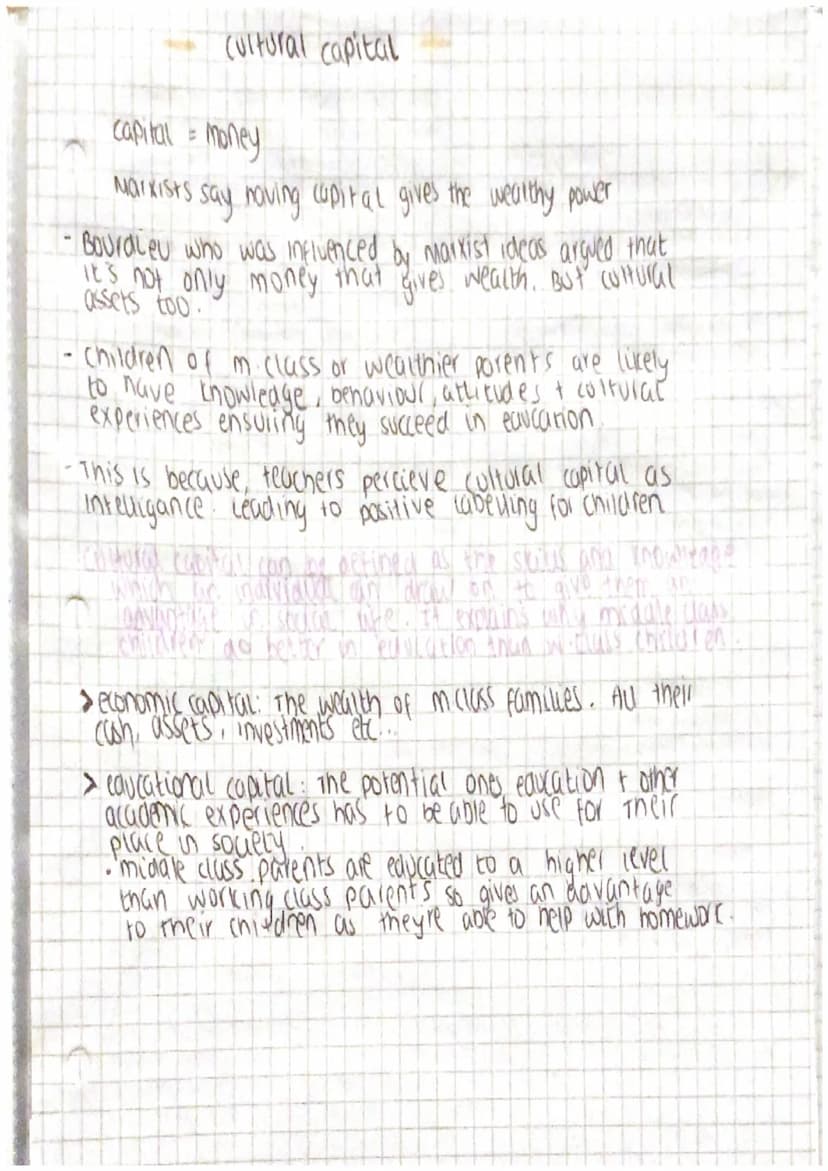 cultural capital
capital = money
Marxists say having capital gives the wealthy power
- Bourdieu who was influenced by Marxist ideas argued that
it's not only money that gives wealth. But cultural
assets too.
- Children of m.class or wealthier parents are likely
to have knowledge, behaviour, attitudes + cultural
experiences ensuring they succeed in education.
- This is because, teachers percieve cultural capital as
intelligance. Leading to positive labelling for children
cultural capital can be defined as the skills and knowledge
which an individual can draw on to give them an
advantage in social life. It explains why middle class
children do better in education than w.class children.
> economic capital: The wealth of m.class families. All their
cash, assets, investments etc...
> educational capital: The potential ones education + other
academic experiences has to be able to use for their
place in society.
• middle class parents are educated to a higher level
than working class parents so gives an advantage
to their children as theyre able to help with homework.